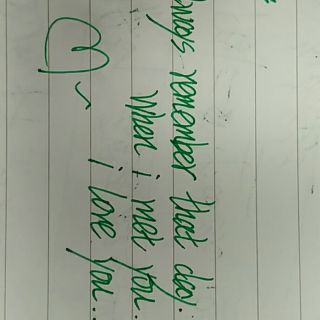 always remember that day.
When i met you.
i love you..